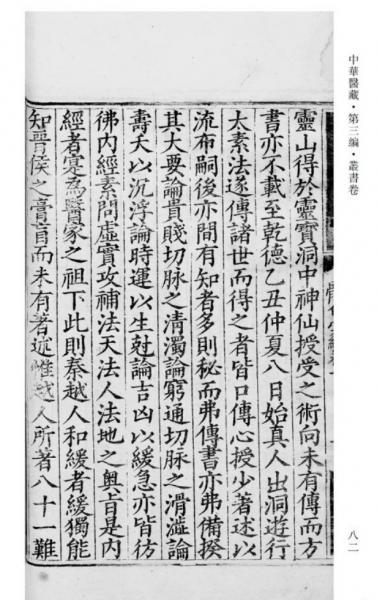 中華醫藏·第三編·叢書卷
八二
靈山得於靈寶洞中神仙授受之術向未有傳而方
書亦不載至乾德乙丑仲夏八日始真人出洞遊行
太素法遂傳諸世而得之者皆口傳心授少著述以
流布嗣後亦間有知者多則秘而弗傳書亦弗備揆
其大要論貴賤切脉之清濁論窮通切脉之滑澁論
壽夭以沉浮論時運以生尅論吉凶以緩急亦皆彷
彿內經素問虛實攻補法天法人法地之奧旨是內
經者寔為醫家之祖下此則秦越人和緩者緩獨能
知晉侯之膏肓而未有著述惟越人所著八十一難